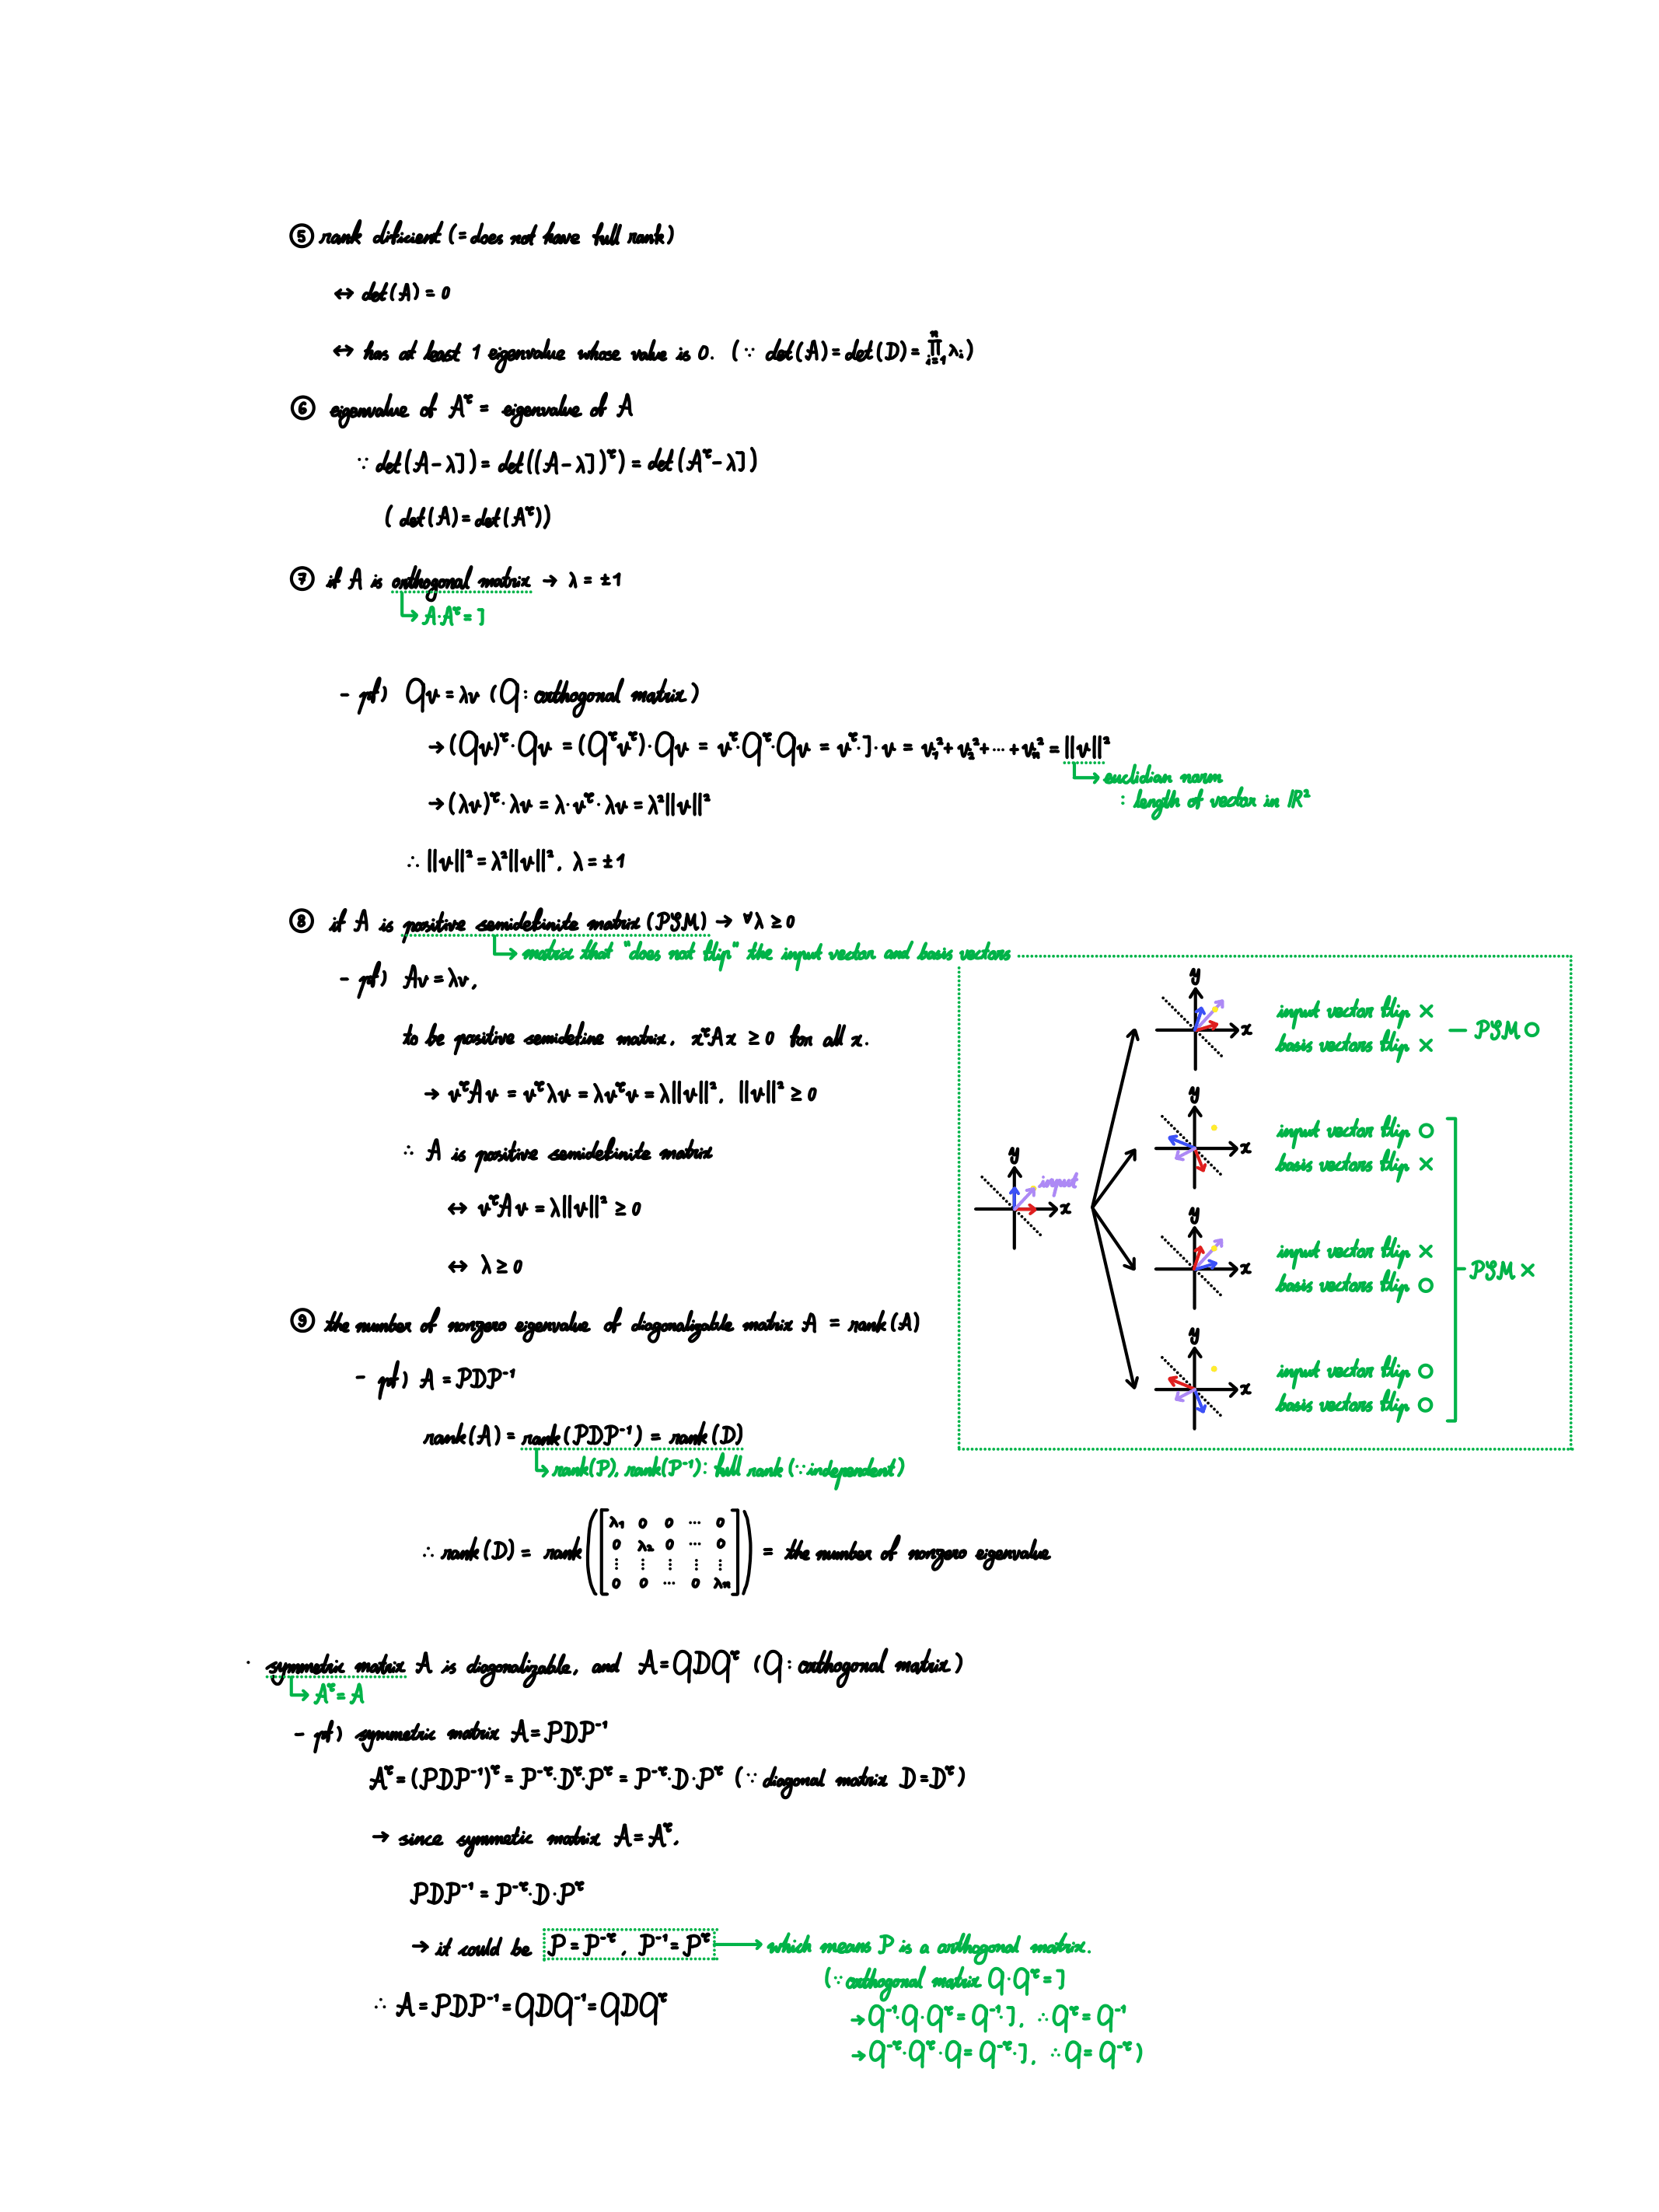 ⑤ rank dificient (= does not have full rank)
↔ det(A) = 0
↔ has at least 1 eigenvalue whose value is 0. (∵ det(A) = det(D) = ∏ᵢ₌₁ⁿ λᵢ)
⑥ eigenvalue of Aᵀ = eigenvalue of A
∵ det(A - λI) = det((A - λI)ᵀ) = det(Aᵀ - λI)
(det(A) = det(Aᵀ))
⑦ if A is orthogonal matrix → λ = ±1
↳ A·Aᵀ = I
- pf) Qv = λv (Q : orthogonal matrix)
→ (Qv)ᵀ·Qv = (Qᵀvᵀ)·Qv = vᵀ·Qᵀ·Qv = vᵀ·I·v = v₁² + v₂² + ··· + vₙ² = ||v||²
↳ euclidian norm
: length of vector in ℝ²
→ (λv)ᵀ·λv = λ·vᵀ·λv = λ²||v||²
∴ ||v||² = λ²||v||², λ = ±1
⑧ if A is positive semidefinite matrix (PSM) → ∀λ ≥ 0
↳ matrix that "does not flip" the input vector and basis vectors
- pf) Av = λv,
to be positive semidefine matrix, xᵀAx ≥ 0 for all x.
→ vᵀAv = vᵀλv = λvᵀv = λ||v||², ||v||² ≥ 0
∴ A is positive semidefinite matrix
↔ vᵀAv = λ||v||² ≥ 0
↔ λ ≥ 0
y
x
input
y
x
input vector flip ×
basis vectors flip ×
PSM ○
y
x
input vector flip ○
basis vectors flip ×
y
x
input vector flip ×
basis vectors flip ○
PSM ×
y
x
input vector flip ○
basis vectors flip ○
⑨ the number of nonzero eigenvalue of diagonalizable matrix A = rank(A)
- pf) A = PDP⁻¹
rank(A) = rank(PDP⁻¹) = rank(D)
↳ rank(P), rank(P⁻¹) : full rank (∵ independent)
∴ rank(D) = rank([λ₁ 0 0 ··· 0
0 λ₂ 0 ··· 0
⋮ ⋮ ⋮ ⋮ ⋮
0 0 ··· 0 λₙ]) = the number of nonzero eigenvalue
· symmetric matrix A is diagonalizable, and A = QDQᵀ (Q : orthogonal matrix)
↳ Aᵀ = A
- pf) symmetric matrix A = PDP⁻¹
Aᵀ = (PDP⁻¹)ᵀ = P⁻ᵀ·Dᵀ·Pᵀ = P⁻ᵀ·D·Pᵀ (∵ diagonal matrix D = Dᵀ)
→ since symmetic matrix A = Aᵀ,
PDP⁻¹ = P⁻ᵀ·D·Pᵀ
→ it could be P = P⁻ᵀ, P⁻¹ = Pᵀ → which means P is a orthogonal matrix.
(∵ orthogonal matrix Q·Qᵀ = I
→ Q⁻¹·Q·Qᵀ = Q⁻¹·I, ∴ Qᵀ = Q⁻¹
→ Q⁻ᵀ·Qᵀ·Q = Q⁻ᵀ·I, ∴ Q = Q⁻ᵀ)
∴ A = PDP⁻¹ = QDQ⁻¹ = QDQᵀ